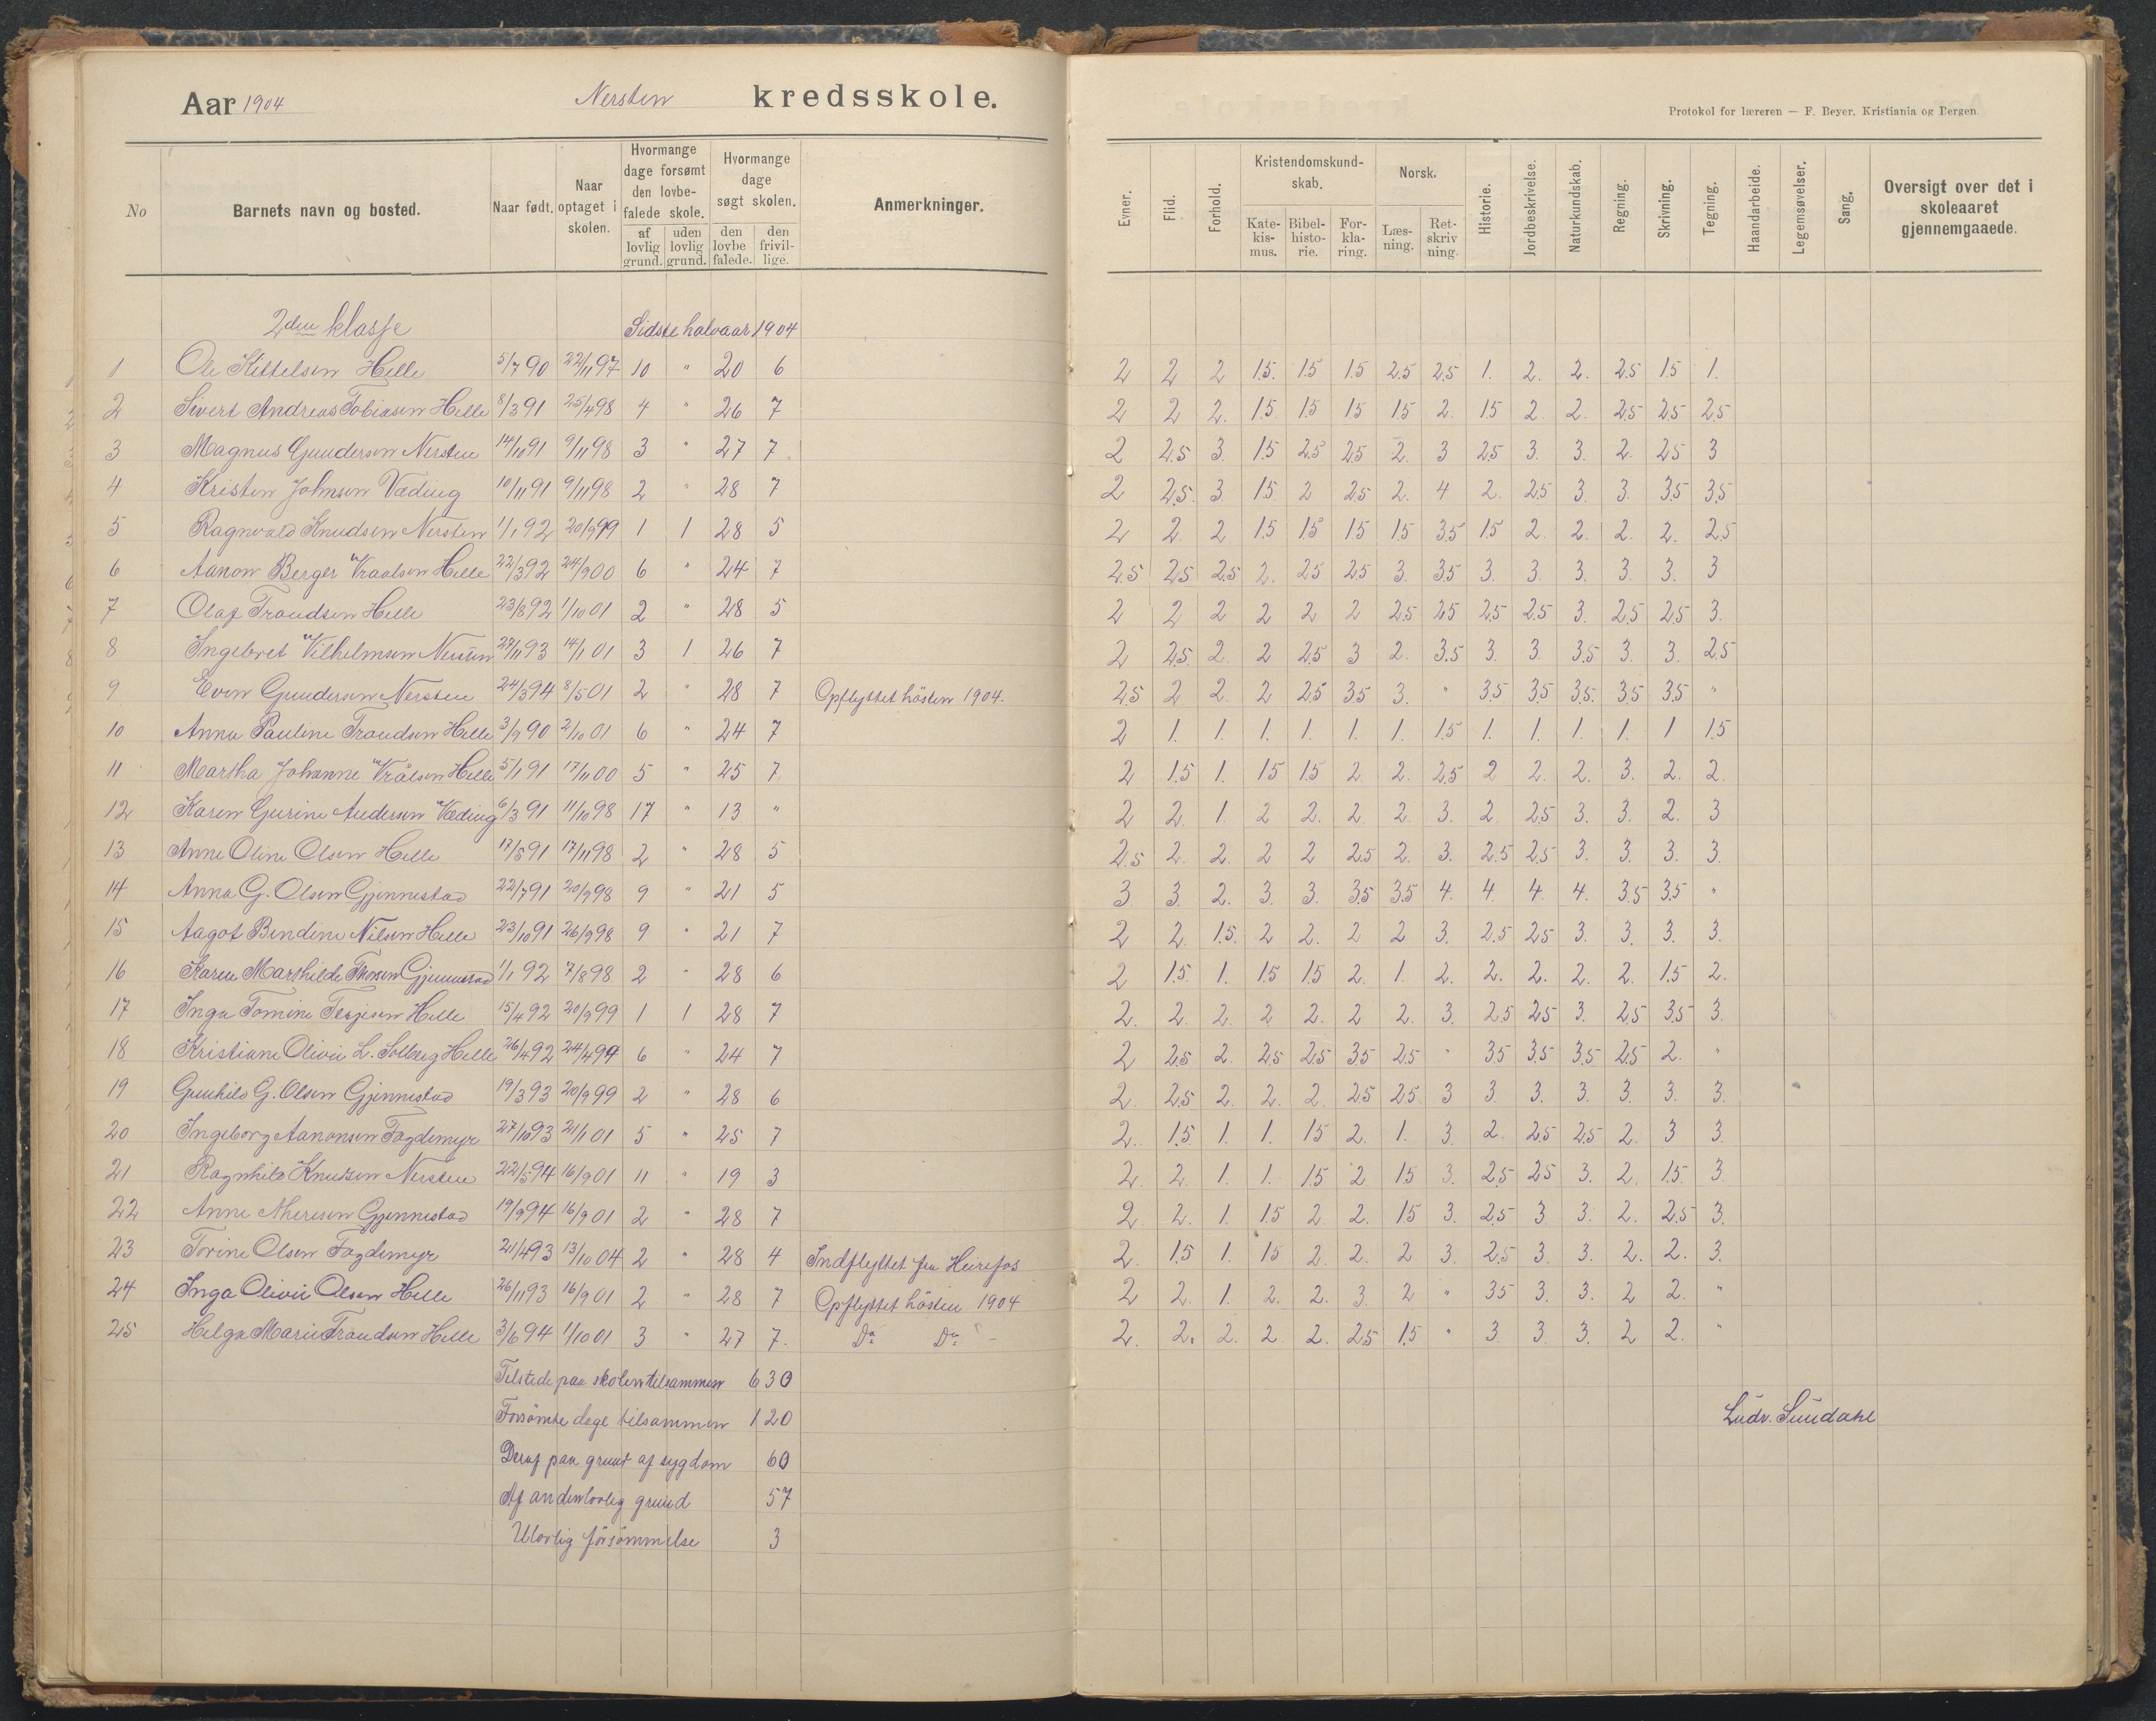 Aar 1904 Nersten kredsskole.
Protokol for læreren — F. Beyer, Kristiania og Bergen.
No Barnets navn og bosted. Naar født. Naar optaget i skolen. Hvormange dage forsømt den lovbefalede skole. af lovlig grund. uden lovlig grund. Hvormange dage søgt skolen. den lovbefalede. den frivillige. Anmerkninger. Evner. Flid. Forhold. Kristendomskundskab. Katekismus. Bibelhistorie. Forklaring. Norsk. Læsning. Retskrivning. Historie. Jordbeskrivelse. Naturkundskab. Regning. Skrivning. Tegning. Haandarbeide. Legemsøvelser. Sang. Oversigt over det i skoleaaret gjennemgaaede.
2den klasse Sidste halvaar 1904
1 Ole Kittelsen Helle 5/7 90 22/11 97 10 " 20 6 2 2 2 1.5. 1.5 1.5 2.5 2.5 1. 2. 2. 2.5 1.5 1.
2 Sivert Andreas Tobiasen Helle 8/3 91 25/4 98 4 " 26 7 2 2 2. 1.5. 1.5 1.5 1.5 2. 1.5 2. 2. 2.5 2.5 2.5
3 Magnus Gundersen Nersten 14/10 91 9/11 98 3 " 27 7. 2 2.5 3. 1.5 2.5 2.5 2. 3 2.5 3. 3. 2. 2.5 3
4 Kristen Johnsen Væding 10/11 91 9/11 98 2 " 28 7 2 2.5. 3. 1.5. 2 2.5 2. 4 2. 2.5 3. 3. 3.5 3.5
5 Ragnvald Knudsen Nersten 1/1 92 20/9 99 1 1 28 5 2 2. 2 1.5 1.5 1.5 1.5 3.5 1.5 2. 2. 2. 2. 2.5
6 Aanon Berger Vraalsen Helle 22/3 92 24/9 00 6 " 24 7 2.5 2.5 2.5 2. 2.5 2.5 3. 3.5 3. 3. 3. 3. 3. 3
7 Olaf Trondsen Helle 23/8 92 1/10 01 2 " 28 5 2 2 2 2 2 2 2.5 2.5 2.5 2.5 3. 2.5 2.5 3.
8 Ingebret Vilhelmsen Nersten 27/11 93 14/1 01 3 1 26 7 2 2.5. 2. 2 2.5 3 2. 3.5 3. 3. 3.5 3. 3. 2.5
9 Even Gundersen Nersten 24/3 94 8/5 01 2 " 28 7 Opflyttet hösten 1904. 2.5 2 2. 2 2.5 3.5 3. " 3.5 3.5 3.5. 3.5 3.5 "
10 Anna Pauline Trondsen Helle 3/9 90 2/10 01 6 " 24 7 2 1. 1. 1. 1. 1. 1. 1.5 1. 1. 1. 1. 1 1.5
11 Martha Johanne Vrålsen Helle 5/1 91 17/11 00 5 " 25 7 2 1.5 1. 1.5 1.5 2. 2. 2.5 2 2. 2. 3. 2. 2.
12 Karen Gurine Andersen Væding 6/3 91 11/10 98 17 " 13 " 2 2. 1. 2 2. 2. 2. 3. 2. 2.5 3. 3. 2. 3
13 Anne Oline Olsen Helle 17/5 91 17/11 98 2 " 28 5 2.5 2. 2. 2 2 2.5 2. 3. 2.5 2.5 3. 3. 3. 3.
14 Anna G. Olsen Gjennestad 22/7 91 20/9 98 9 " 21 5 3 3. 2. 3. 3. 3.5 3.5 4. 4. 4. 4. 3.5 3.5 "
15 Aagot Bendine Nilsen Helle 23/10 91 26/9 98 9 " 21 7 2 2. 1.5. 2 2. 2 2 3. 2.5 2.5 3. 3. 3. 3.
16 Karen Mathilde Gjennestad 1/1 92 7/8 98 2 " 28 6 2 1.5. 1. 1.5 1.5 2. 1. 2. 2. 2. 2. 2. 1.5 2.
17 Inga Tomine Terjesen Helle 15/4 92 20/9 99 1 1 28 7 2. 2. 2. 2 2. 2 2. 3. 2.5 2.5 3. 2.5 3.5 3.
18 Kristiane Olivie L. Solberg Helle 26/4 92 24/4 99 6 " 24 7 2 2.5 2. 2.5 2.5 3.5 2.5 " 3.5 3.5 3.5 2.5 2. "
19 Gunhild G. Olsen Gjennestad 19/3 93 20/9 99 2 " 28 6 2. 2.5 2. 2. 2. 2.5 2.5 3 3. 3. 3. 3. 3. 3.
20 Ingeborg Aanonsen Fogdemyr 27/10 93 21/1 01 5 " 25 7 2. 1.5 1. 1. 1.5 2. 1. 3. 2. 2.5 2.5 2. 3 3.
21 Ragnhild Knudsen Nersten 22/5 94 16/9 01 11 " 19 3 2. 2. 1. 1. 1.5 2 1.5 3. 2.5 2.5 3. 2. 1.5. 3.
22 Anne Gjennestad 19/9 94 16/9 01 2 " 28 7 2. 2. 1. 1.5 2. 2. 1.5 3. 2.5 3. 3. 2. 2.5 3.
23 Torine Olsen Fogdemyr 21/4 93 13/10 04 2 " 28 4 Indflyttet fra Heirefos 2. 1.5 1. 1.5 2. 2. 2 3. 2.5 3. 3. 2. 2. 3.
24 Inga Olivie Olsen Helle 26/11 93 16/9 01 2 " 28 7 Opflyttet hösten 1904 2 2. 1. 2. 2. 3. 2 " 3.5 3. 3. 2 2. "
25 Helga Marie Trondsen Helle 3/6 94 1/10 01 3 " 27 7. Do Do - 2. 2. 2. 2. 2. 2.5 1.5 " 3. 3. 3. 2 2. "
Tilstede paa skolen tilsammen 630
Forsömte dage tilsammen 120
Deraf paa grunt af sygdom 60
Af anden lovlig grund 57
Ulovlig försömmelse 3
Ludv. Sundahl